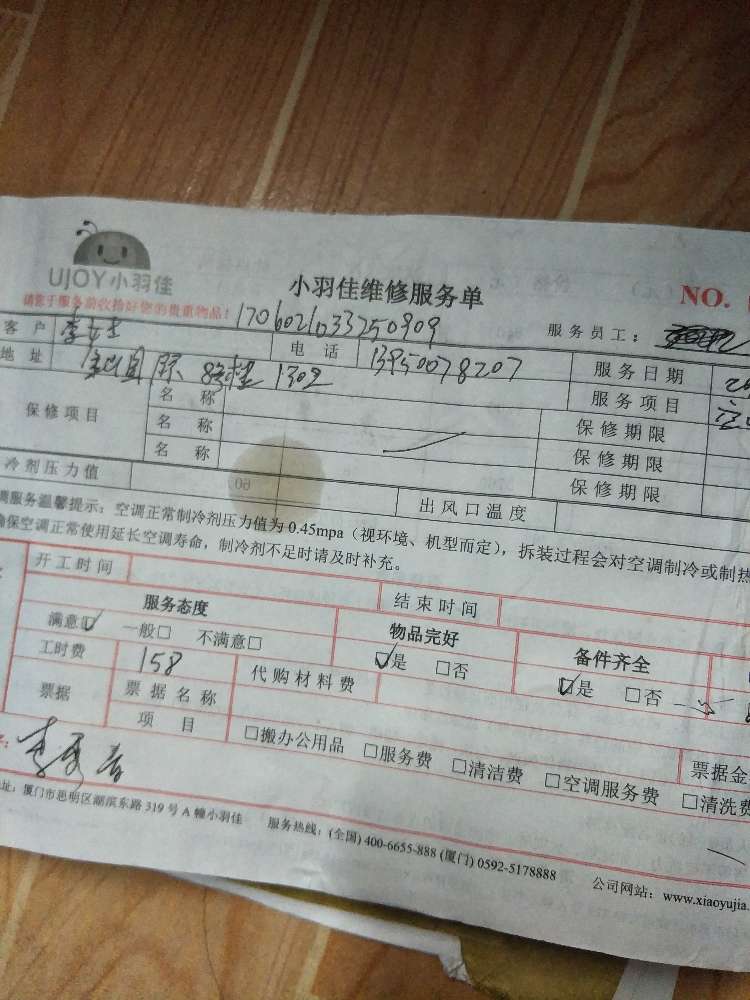 UJOY小羽佳
小羽佳维修服务单
NO.
请您于服务前收拾好您的贵重物品!
1706021033250909
服务员工:
客户 李女士 电话 13950078207 服务日期
地址 1302 服务项目
保修项目 名称 保修期限
名称 保修期限
名称 保修期限
冷剂压力值 出风口温度
调服务温馨提示:空调正常制冷剂压力值为0.45mpa(视环境、机型而定),拆装过程会对空调制冷或制热
确保空调正常使用延长空调寿命,制冷剂不足时请及时补充。
开工时间 结束时间
服务态度 物品完好 备件齐全
满意☑ 一般□ 不满意□ ☑是 □否 ☑是 □否
工时费 158 代购材料费
票据 票据名称
项目 □搬办公用品 □服务费 □清洁费 □空调服务费 □清洗费
票据金
地址:厦门市思明区湖滨东路319号A幢小羽佳 服务热线:(全国)400-6655-888 (厦门)0592-5178888 公司网站:www.xiaoyujia.